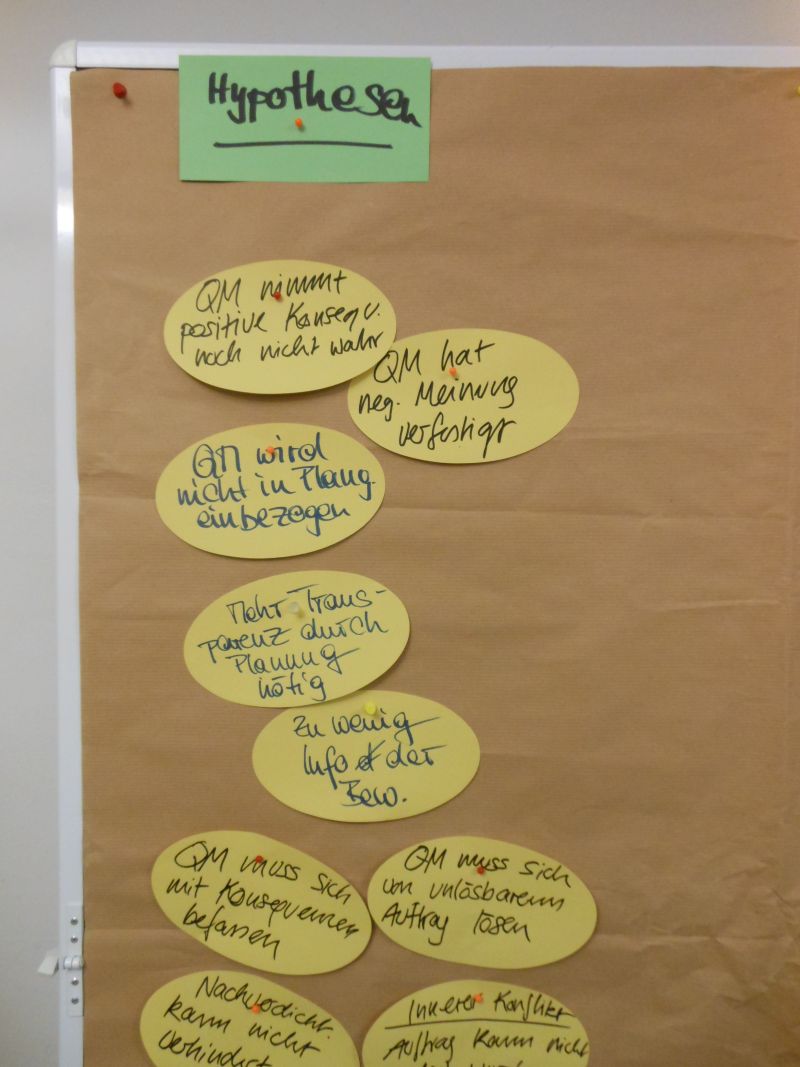 Hypothesen
QM nimmt
positive Konsequ.
noch nicht wahr
QM hat
neg. Meinung
verfestigt
QM wird
nicht in Plang.
einbezogen
Mehr Trans-
parenz durch
Planung
nötig
Zu wenig
Info der
Bew.
QM muss sich
mit Konsequenzen
befassen
QM muss sich
von unlösbarem
Auftrag lösen
Nachverdicht.
kann nicht
verhindert
Innerer Konflikt
Auftrag kann nicht